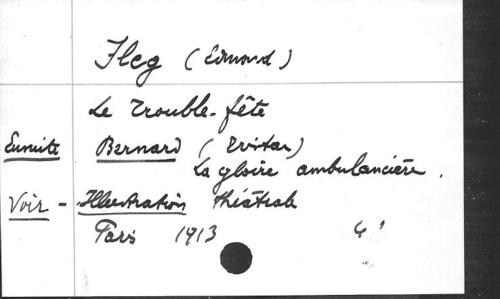 Fleg (Edmond)
Le Trouble-fête
Ensuite Bernard (Tristan)
La gloire ambulancière.
Voir - Illustration théâtrale
Paris 1913 4°